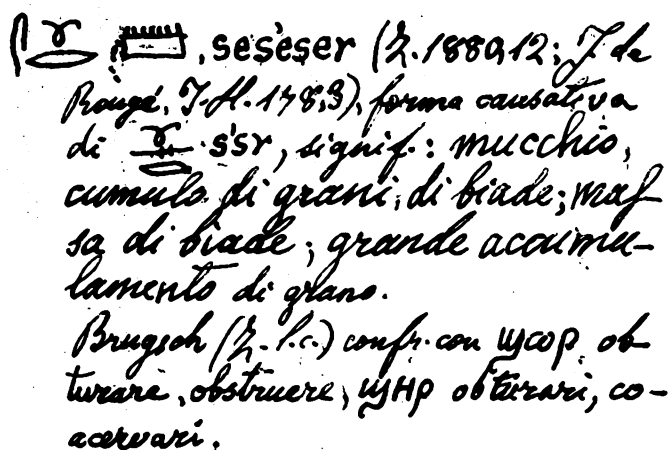 , ses'eser (Z. 1880,12; J de
Rougé, J. H. 148,3), forma causativa
di s'sr, signif.: mucchio,
cumulo di grani, di biade; mas-
sa di biade; grande accumu-
lamento di grano.
Brugsch (Z. l.c.) confr. con ϣϭⲟⲣ ob-
turare, obstruere, ϣⲏⲣ obturari, co-
acervari.